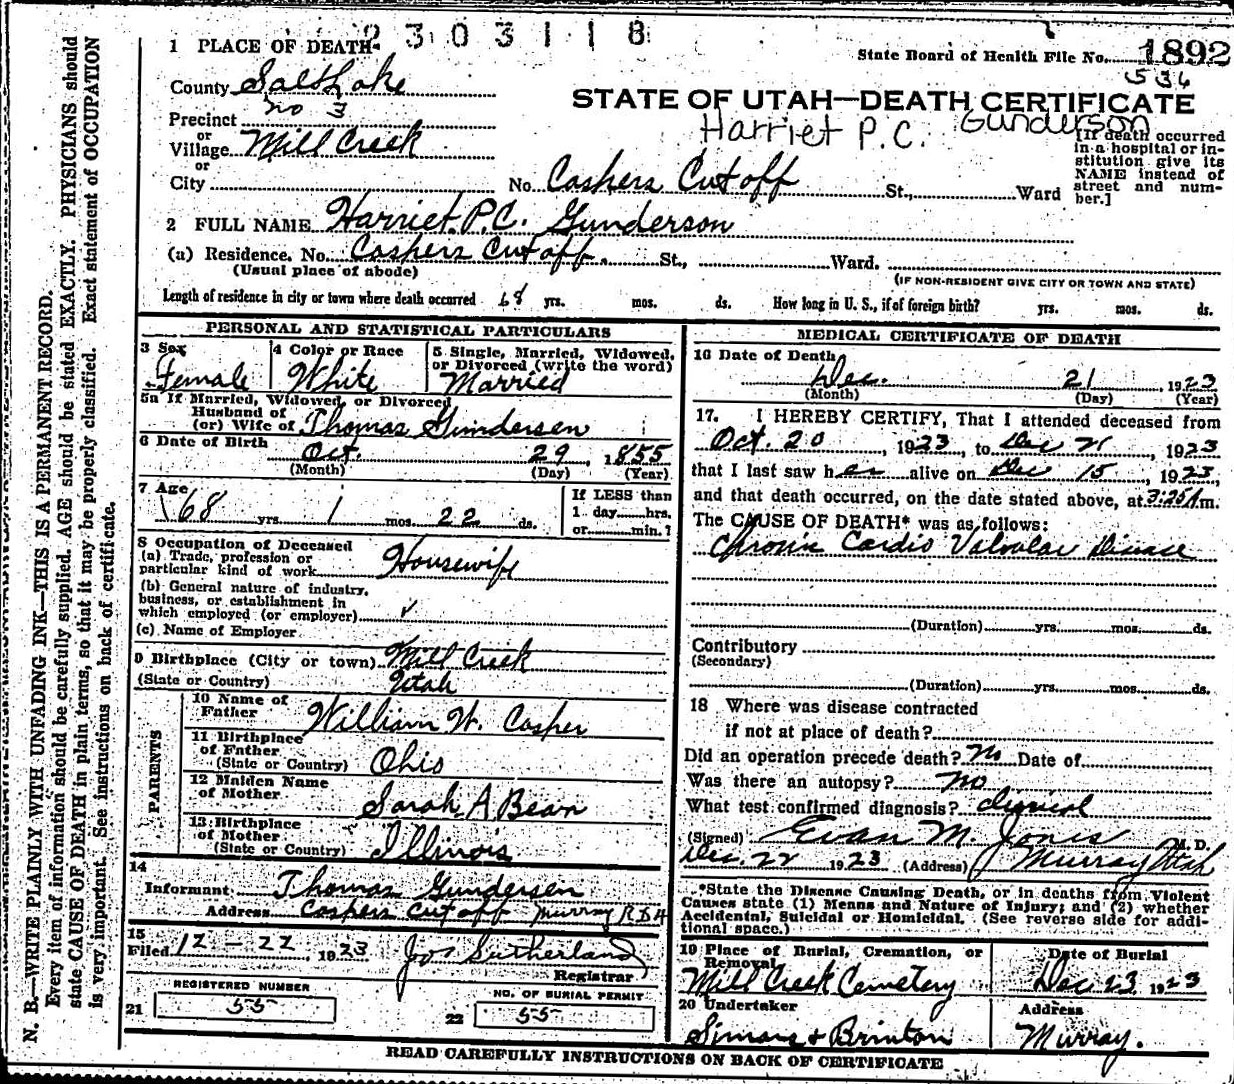 2303118
1 PLACE OF DEATH
State Board of Health File No. 1892
536
County Salt Lake
STATE OF UTAH—DEATH CERTIFICATE
Precinct No 3
Harriet P.C. Gunderson
or
Village Mill Creek
or
City
No. Caspers Cut off St., Ward
[If death occurred
in a hospital or in-
stitution give its
NAME instead of
street and num-
ber.]
2 FULL NAME Harriet P.C. Gunderson
(a) Residence. No. Caspers Cut off. St., Ward.
(Usual place of abode)
(IF NON-RESIDENT GIVE CITY OR TOWN AND STATE)
Length of residence in city or town where death occurred 68 yrs. mos. ds. How long in U. S., if of foreign birth? yrs. mos. ds.
PERSONAL AND STATISTICAL PARTICULARS
3 Sex
Female
4 Color or Race
White
5 Single, Married, Widowed,
or Divorced (write the word)
Married
5a If Married, Widowed, or Divorced
Husband of
(or) Wife of Thomas Gundersen
6 Date of Birth
Oct. 29, 1855
(Month) (Day) (Year)
7 Age
68 yrs. 1 mos. 22 ds.
If LESS than
1 day hrs.
or min.?
8 Occupation of Deceased
(a) Trade, profession or
particular kind of work Housewife
(b) General nature of industry,
business, or establishment in
which employed (or employer)
(c) Name of Employer
9 Birthplace (City or town) Mill Creek
(State or Country) Utah
PARENTS
10 Name of
Father William W. Casper
11 Birthplace
of Father
(State or Country) Ohio
12 Maiden Name
of Mother Sarah A Bean
13 Birthplace
of Mother
(State or Country) Illinois
14
Informant Thomas Gundersen
Address Caspers Cut off Murray R D 4
15
Filed 12-22 1923 Jos Sutherland
Registrar
REGISTERED NUMBER
21 55
NO. OF BURIAL PERMIT
22 55
MEDICAL CERTIFICATE OF DEATH
16 Date of Death
Dec. 21, 1923
(Month) (Day) (Year)
17. I HEREBY CERTIFY, That I attended deceased from
Oct. 20, 1923, to Dec 21, 1923
that I last saw her alive on Dec 15, 1923,
and that death occurred, on the date stated above, at 3:25 A.m.
The CAUSE OF DEATH* was as follows:
Chronic Cardio Valvular Disease
(Duration) yrs. mos. ds.
Contributory
(Secondary)
(Duration) yrs. mos. ds.
18 Where was disease contracted
if not at place of death?
Did an operation precede death? No Date of
Was there an autopsy? No
What test confirmed diagnosis? clinical
(Signed) Evan M. Jones M. D.
Dec. 22 1923 (Address) Murray Utah
*State the Disease Causing Death, or in deaths from Violent
Causes state (1) Means and Nature of Injury; and (2) whether
Accidental, Suicidal or Homicidal. (See reverse side for addi-
tional space.)
19 Place of Burial, Cremation, or
Removal
Mill Creek Cemetery
Date of Burial
Dec 23 1923
20 Undertaker
Simons & Brinton
Address
Murray.
READ CAREFULLY INSTRUCTIONS ON BACK OF CERTIFICATE
N. B.—WRITE PLAINLY WITH UNFADING INK—THIS IS A PERMANENT RECORD.
Every item of information should be carefully supplied. AGE should be stated EXACTLY. PHYSICIANS should
state CAUSE OF DEATH in plain terms, so that it may be properly classified. Exact statement of OCCUPATION
is very important. See instructions on back of certificate.